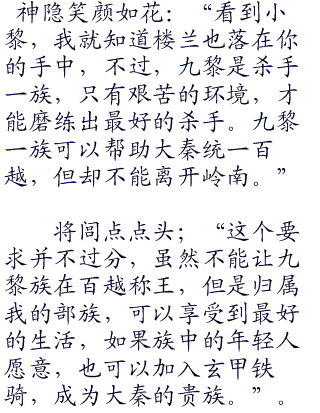 神隐笑颜如花：“看到小
黎，我就知道楼兰也落在你
的手中，不过，九黎是杀手
一族，只有艰苦的环境，才
能磨练出最好的杀手。九黎
一族可以帮助大秦统一百
越，但却不能离开岭南。”
将闾点点头；“这个要
求并不过分，虽然不能让九
黎族在百越称王，但是归属
我的部族，可以享受到最好
的生活，如果族中的年轻人
愿意，也可以加入玄甲铁
骑，成为大秦的贵族。”。